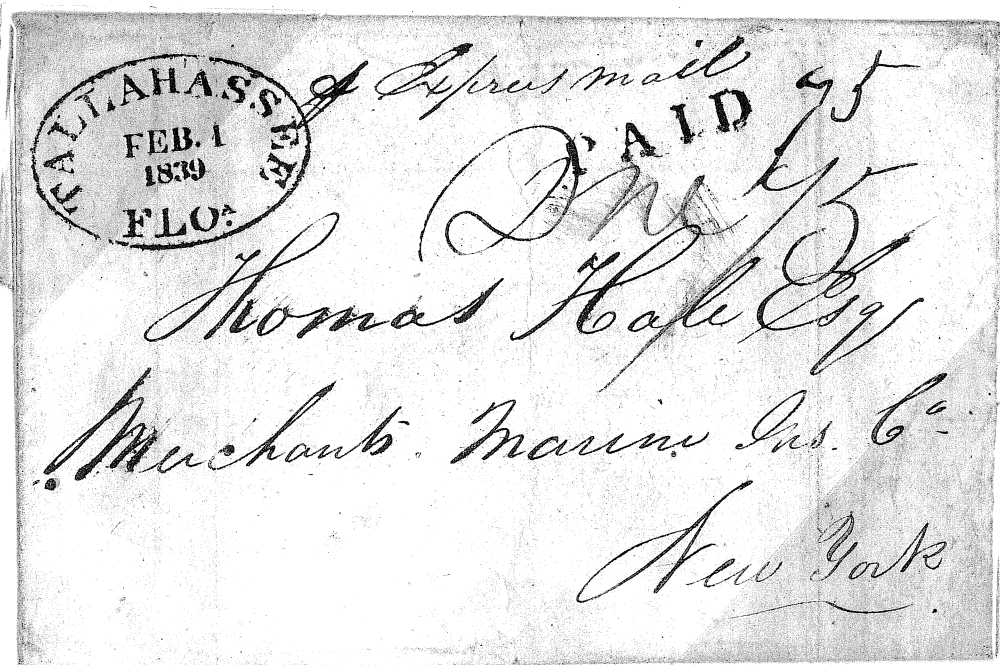 TALLAHASSEE
FEB. 1
1839
FLOA.
Express mail 75
PAID
One 75
Thomas Hale Esq
Merchants Marine Ins. Co
New York